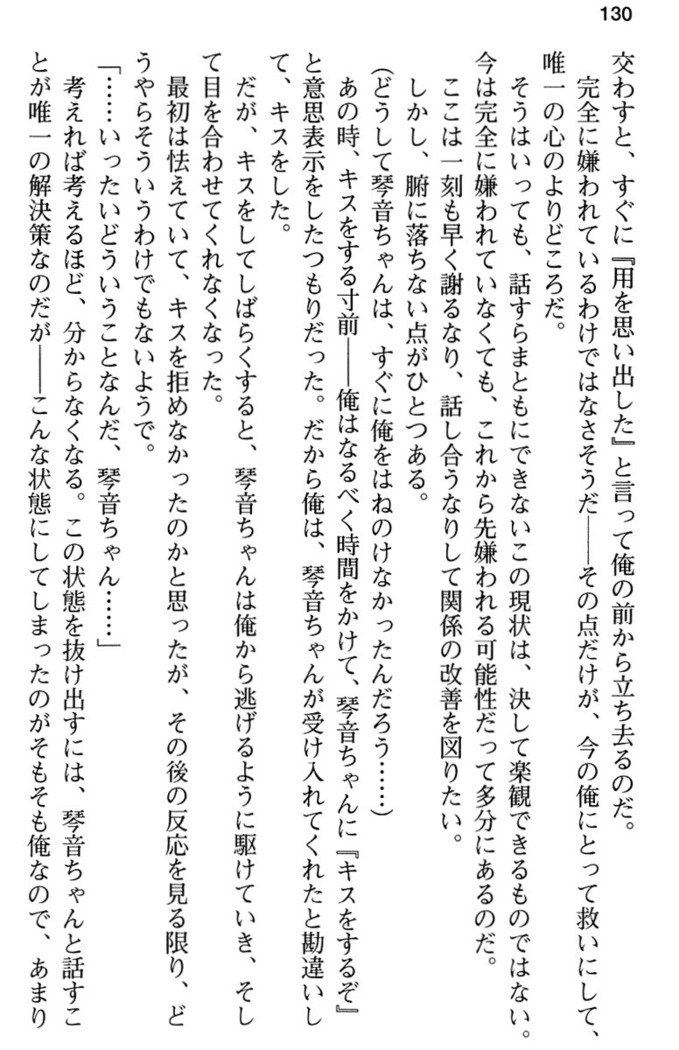 130
交わすと、すぐに『用を思い出した』と言って俺の前から立ち去るのだ。
完全に嫌われているわけではなさそうだ――その点だけが、今の俺にとって救いにして、
唯一の心のよりどころだ。
そうはいっても、話すらまともにできないこの現状は、決して楽観できるものではない。
今は完全に嫌われていなくても、これから先嫌われる可能性だって多分にあるのだ。
ここは一刻も早く謝るなり、話し合うなりして関係の改善を図りたい。
しかし、腑に落ちない点がひとつある。
(どうして琴音ちゃんは、すぐに俺をはねのけなかったんだろう……)
あの時、キスをする寸前――俺はなるべく時間をかけて、琴音ちゃんに『キスをするぞ』
と意思表示をしたつもりだった。だから俺は、琴音ちゃんが受け入れてくれたと勘違いし
て、キスをした。
だが、キスをしてしばらくすると、琴音ちゃんは俺から逃げるように駆けていき、そし
て目を合わせてくれなくなった。
最初は怯えていて、キスを拒めなかったのかと思ったが、その後の反応を見る限り、ど
うやらそういうわけでもないようで。
「……いったいどういうことなんだ、琴音ちゃん……」
考えれば考えるほど、分からなくなる。この状態を抜け出すには、琴音ちゃんと話すこ
とが唯一の解決策なのだが――こんな状態にしてしまったのがそもそも俺なので、あまり